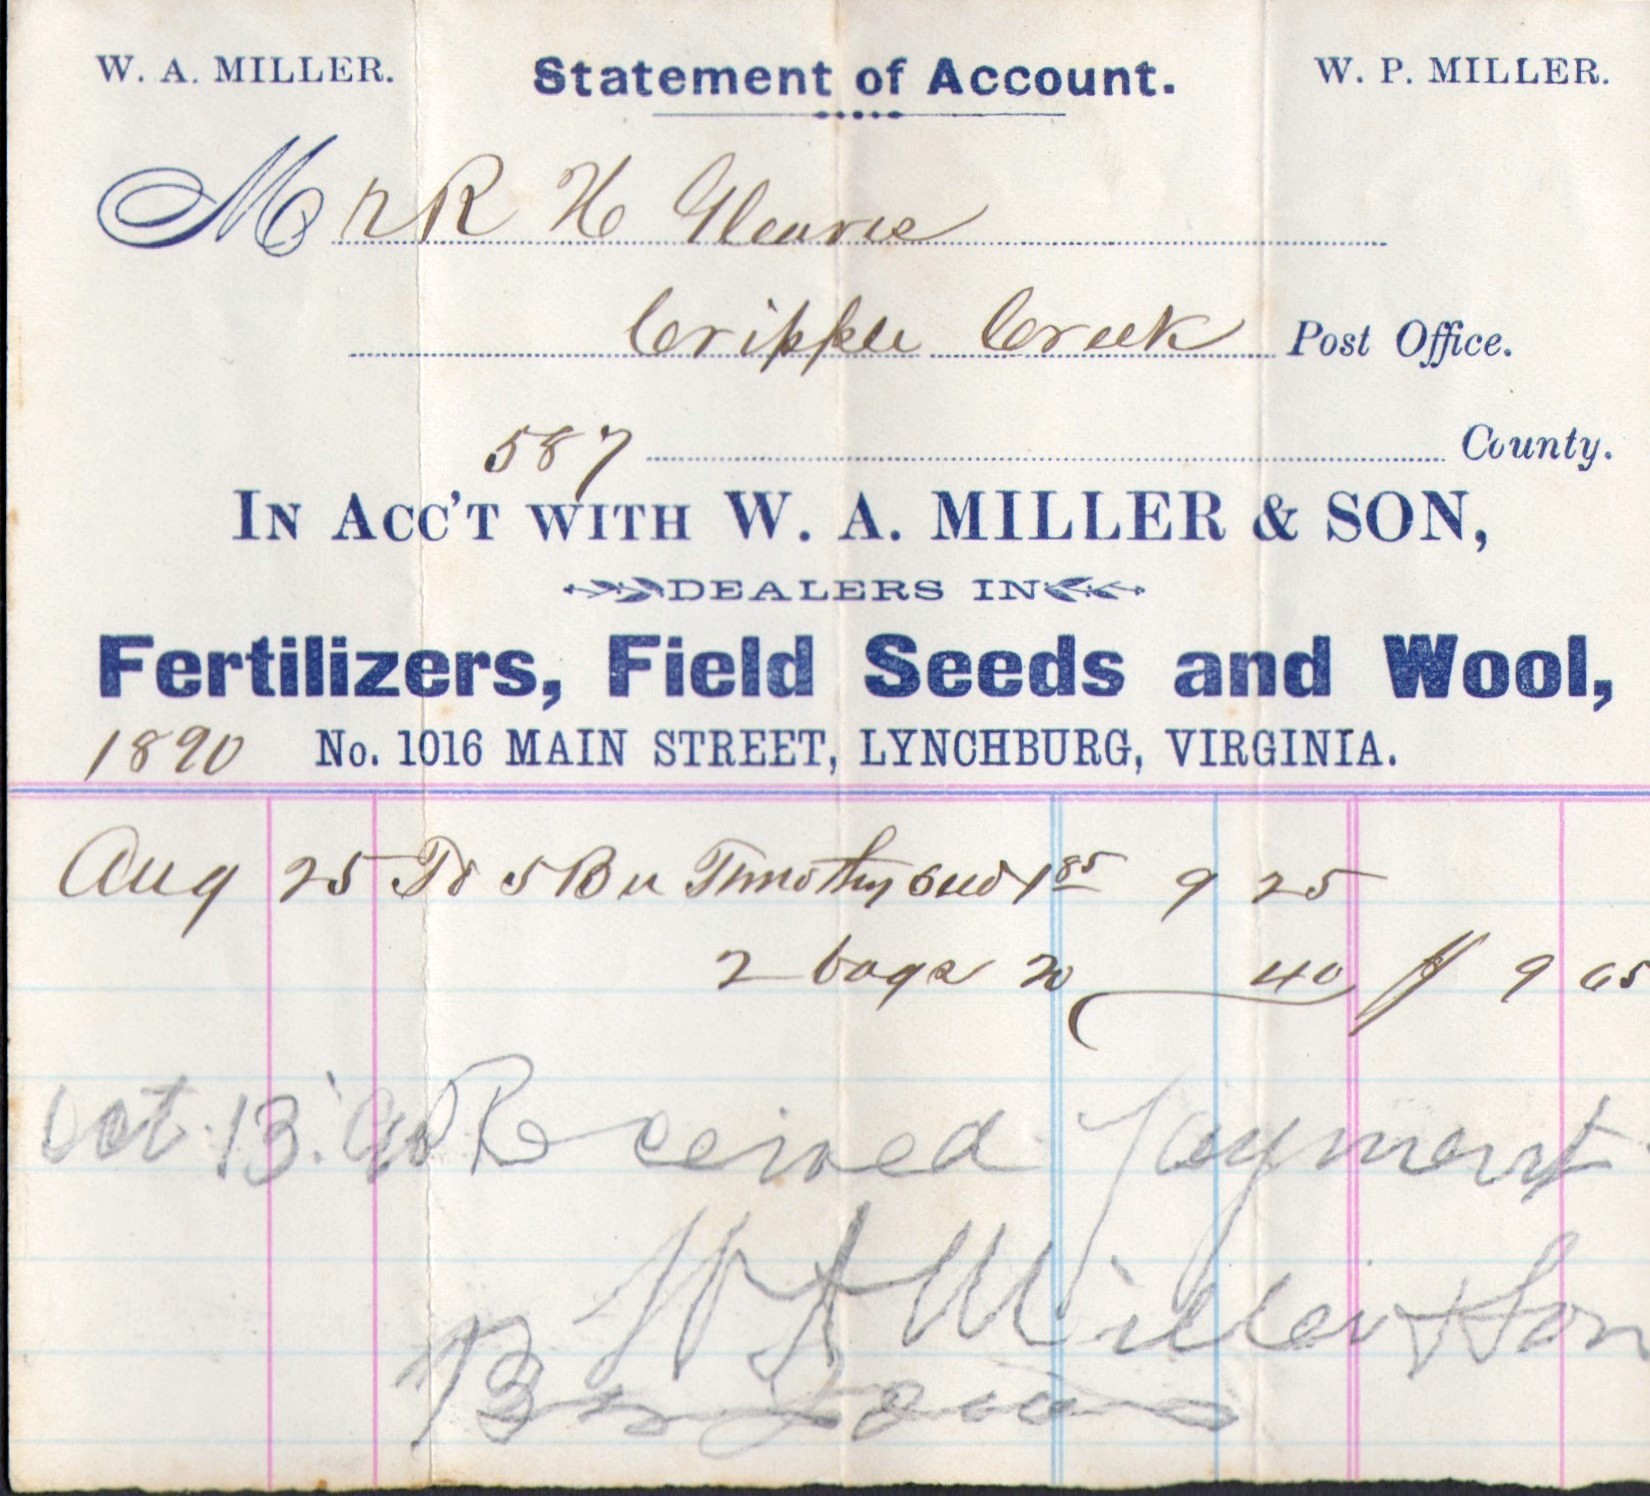 W. A. MILLER. Statement of Account. W. P. MILLER.
Mr R H Gleaves
Cripple Creek Post Office.
587 County.
IN ACC'T WITH W. A. MILLER & SON,
DEALERS IN
Fertilizers, Field Seeds and Wool,
1890 No. 1016 MAIN STREET, LYNCHBURG, VIRGINIA.
Aug 25 To 5 Bu Timothy Seed 1 85 9 25
2 bags 20 40 $ 9 65
Oct 13 '90 Received Payment
W A Miller & Son